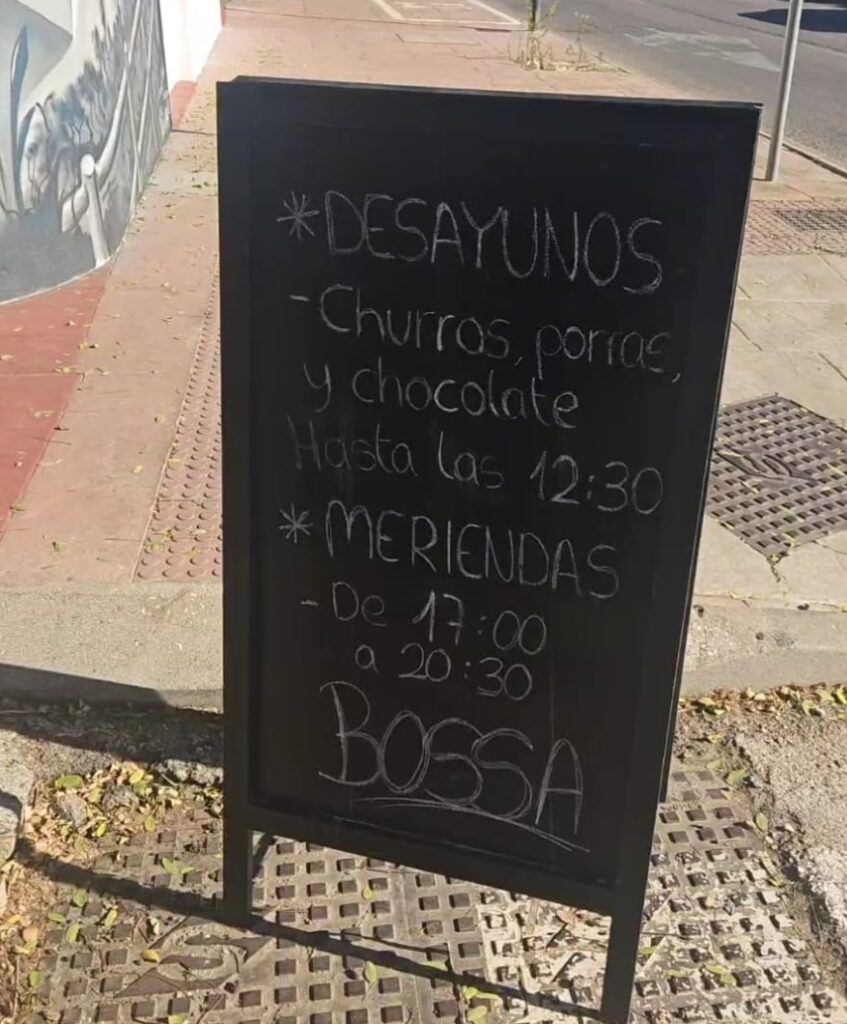 *DESAYUNOS
- Churros, porras,
y chocolate
Hasta las 12:30
*MERIENDAS
- De 17:00
a 20:30
BOSSA